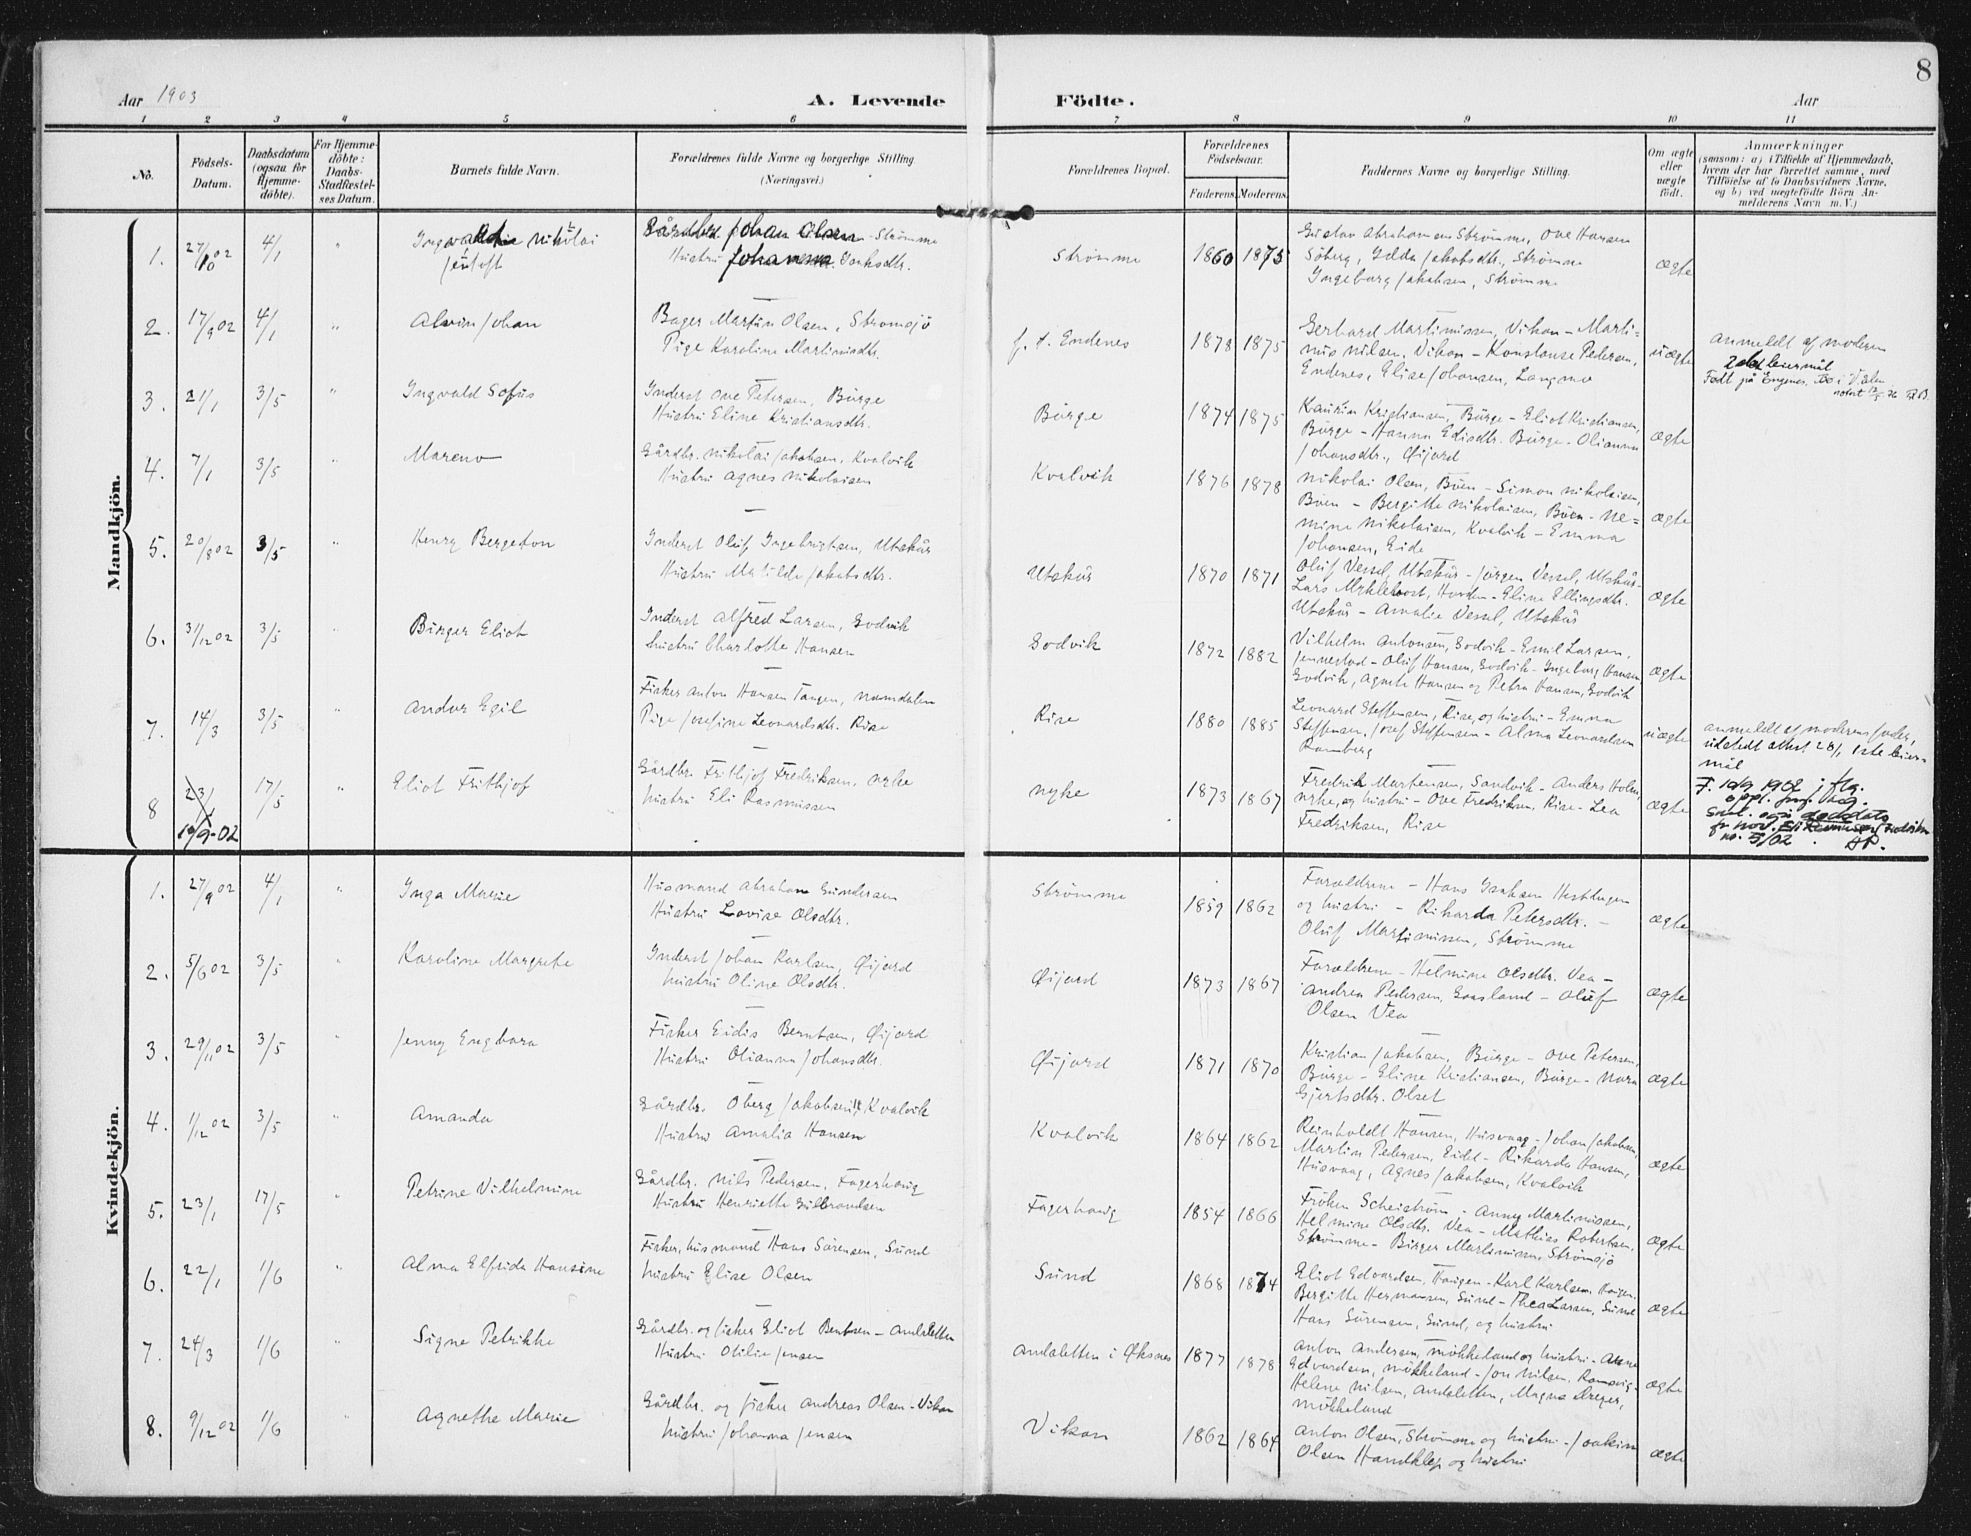 8
Aar 1903
A. Levende
Födte.
Aar
1 2 3 4 5 6 7 8 9 10 11
No.
Födsels-Datum.
Daabsdatum (ogsaa for Hjemme-döbte).
For Hjemme-döbte: Daabs-Stadfæstel-ses Datum.
Barnets fulde Navn.
Forældrenes fulde Navne og borgerlige Stilling (Næringsvei.)
Forældrenes Bopæl.
Forældrenes Födselsaar.
Faderens Moderens
Faddernes Navne og borgerlige Stilling.
Om ægte eller uægte födt.
Anmærkninger
(saasom: a) i Tilfælde af Hjemmedaab,
hvem der har forrettet samme, med
Tilföielse af to Daabsvidners Navne,
og b) ved uægtefödte Börn An-
melderens Navn m. V.)
Mandkjön.
1. 27/10 02 4/1 " Nikolai Jentoft
Gårdbr. Johan Olsen - Strømme
Hustru Johanna
Strømme 1860 1875
Gustav Abrahamsen Strømme, Ove Hansen
Söberg, Gilda Jakobsdtr., Strømme
Ingeborg Jakobsen, Strømme
ægte
2. 17/9 02 4/1 " Alvin Johan
Bager Martin Olsen, Stromsjö
Pige Karoline Martinisdtr.
f. t. Endenes 1878 1875
Gerhard Martinissen, Vikan - Marti-
nus Nilsen, Vikan - Konstanse Pedersen,
Endenes, Elise Johansen, Langmo
uægte
anmeldt af moderen
2det leiermål
Født på Engenes
3. 21/1 3/5 " Ingvald Sofus
Inderst Ove Petersen, Bürge
Hustru Eline Kristiansdtr.
Bürge 1874 1875
Laurin Kristiansen, Bürge - Eliot Kristiansen,
Bürge - Hanna Edisdtr. Bürge - Olianna
Johansdtr., Øijord
ægte
4. 7/1 3/5 " Mareno
Gårdbr. Nikolai Jakobsen, Kvalvik
Hustru Agnes Nikolaisen
Kvalvik 1876 1878
Nikolai Olsen, Büen - Simon Nikolaisen,
Büen - Bergitte Nikolaisen, Büen - Ne-
mine Nikolaisen, Kvalvik - Emma
Johansen, Eide
ægte
5. 20/8 02 3/5 " Henry Bergeton
Inderst Oluf Ingebrigtsen, Utskår
Hustru Matilde Jakobsdtr.
Utskår 1870 1871
Oluf Vessel, Utskår - Jörgen Vessel, Utskår -
Lars Myklebost, - Eline Ellingsdtr.
Utskår - Amalie Vessel, Utskår
ægte
6. 31/12 02 3/5 " Birger Eliot
Inderst Alfred Larsen, Godvik
Hustru Charlotte Hansen
Godvik 1872 1882
Vilhelm Antonsen, Godvik - Emil Larsen,
Jennestad - Oluf Hansen, Godvik - Ingeborg Hansen
Godvik, Agnete Hansen og Petra Hansen, Godvik
ægte
7. 14/3 3/5 " Andor Egil
Fisker Anton Hansen Tangen, Namdalen
Pige Josefine Leonardsdtr. Rise
Rise 1880 1885
Leonard Steffensen, Rise, og hustru - Emma
Steffensen, Josef Steffensen - Alma Leonardsen
Ramberg
uægte
anmeldt af moderens fader,
udstedt attest 28/1, 1ste leier-
mål
8 23/1 19/9-02 17/5 " Eliot Frithjof
Gårdbr. Frithjof Fredriksen, Nyke
hustru Eli Rasmussen
Nyke 1873 1867
Fredrik Martensen, Sandvik - Anders Holm,
Nyke, og hustru - Ove Fredriksen, Rise - Lea
Fredriksen, Rise
ægte
F. 19/9 1902 j flg.
oppl.
Sml. også dødsdato
no. 5/02. AP.
Kvindekjön.
1. 27/9 02 4/1 " Inga Marie
Husmand Abraham Gundersen
Hustru Lovise Olsdtr.
Strømme 1859 1862
Forældrene - Hans Isaksen
og hustru - Rikarda Petersdtr. -
Oluf Martinissen, Strømme
ægte
2. 5/6 02 3/5 " Karoline Margrete
Inderst Johan Karlsen, Øijord
hustru Oline Olsdtr.
Øijord 1873 1867
Forældrene - Helmine Olsdtr. Vea -
Andrea Pedersen, Gaasland - Oluf
Olsen Vea
ægte
3. 29/11 02 3/5 " Jenny Engbora
Fisker Eidis Berntsen, Øijord
Hustru Olianna Johansdtr.
Øijord 1871 1870
Kristian Jakobsen, Bürge - Ove Petersen,
Bürge - Eline Kristiansen, Bürge - Nora
Gjertsdtr. Olset
ægte
4. 1/12 02 3/5 " Amanda
Gårdbr. Oberg Jakobsen, Kvalvik
Hustru Amalia Hansen
Kvalvik 1864 1862
Reinholdt Hansen, Husvaag - Johan Jakobsen,
Martin Pedersen, Eidet - Rikarda Hansen,
Husvaag, Agnes Jakobsen, Kvalvik
ægte
5. 23/1 17/5 " Petrine Vilhelmine
Gårdbr. Nils Pedersen, Fagerhaug
Hustru Henriette Gulbrandsen
Fagerhaug 1854 1866
Frøken Scheistrøm - Anny Martinissen,
Helmine Olsdtr. Vea - Mathias Robertsen,
Strømme - Birger Martinissen, Strömsjö
ægte
6. 22/1 1/6 " Alma Elfrida Hansine
Fisker, husmand Hans Sörensen, Sund
hustru Elise Olsen
Sund 1868 1874
Eliot Edvardsen, Haugen - Karl Karlsen, Haugen,
Bergitte Hermansen, Sund - Thea Larsen, Sund
Hans Sörensen, Sund, og hustru
ægte
7. 24/3 1/6 " Signe Petrikke
Gårdbr. og fisker Eliot Bentsen - Andaletten
Hustru Otilie Jensen
Andaletten i Øksnes 1877 1878
Anton Andersen, Mökkeland og hustru - Anne
Edvardsen, Mökkeland - Jon Nilsen,
Helene Nilsen, Andaletten, Magna Dreyer,
Mökkeland
ægte
8. 9/12 02 1/6 " Agnethe Marie
Gårdbr. og fisker Andreas Olsen - Vikan
hustru Johanna Jensen
Vikan 1862 1864
Anton Olsen, Strømme og hustru - Joakim
Olsen Handklep og hustru
ægte